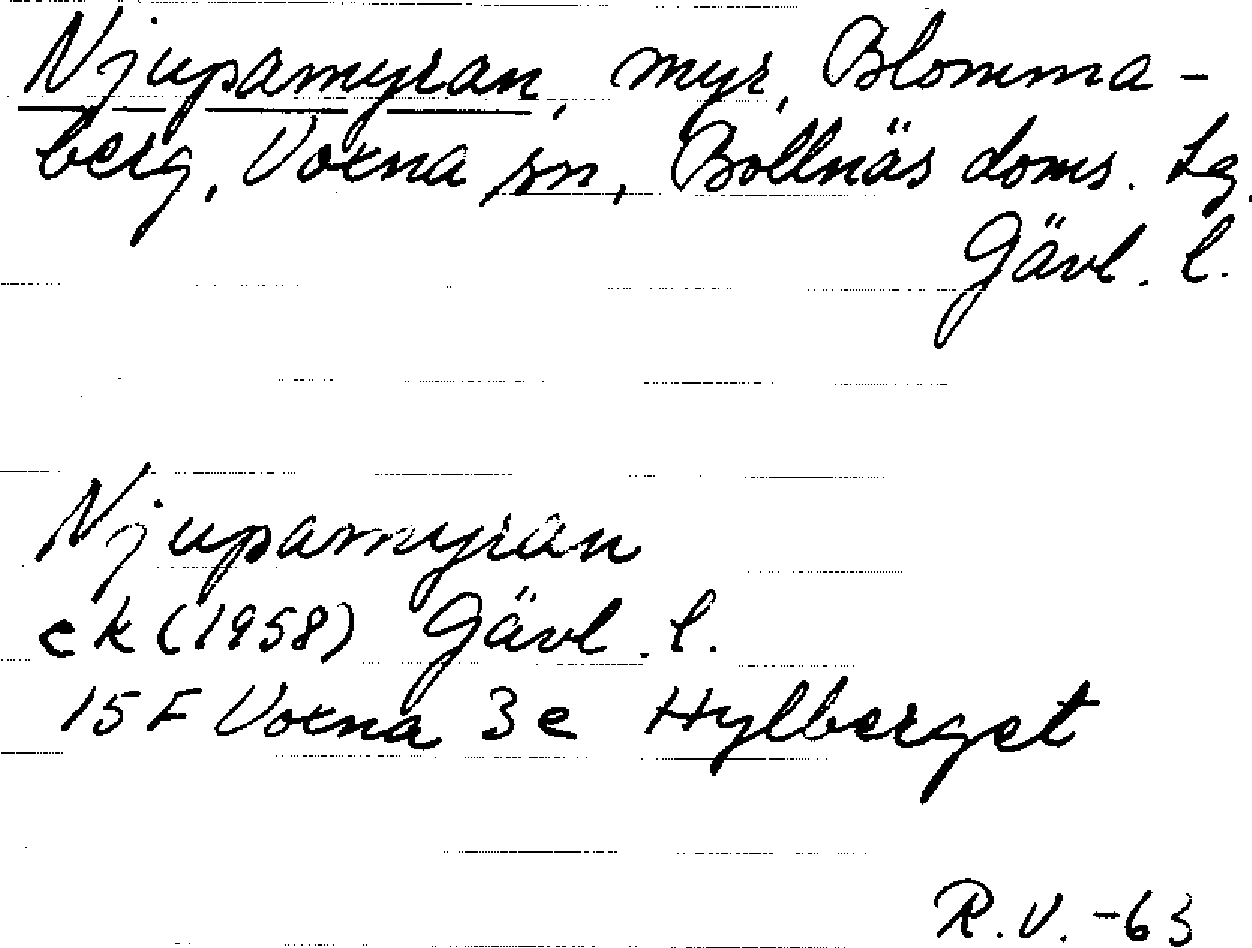 Njupamyran, myr, Blomma-
berg, Voxna sn, Bollnäs doms. tg.
Gävl. l.
Njupamyran
ek (1958) Gävl. l.
15F Voxna 3e Hylberget
R.V. -63